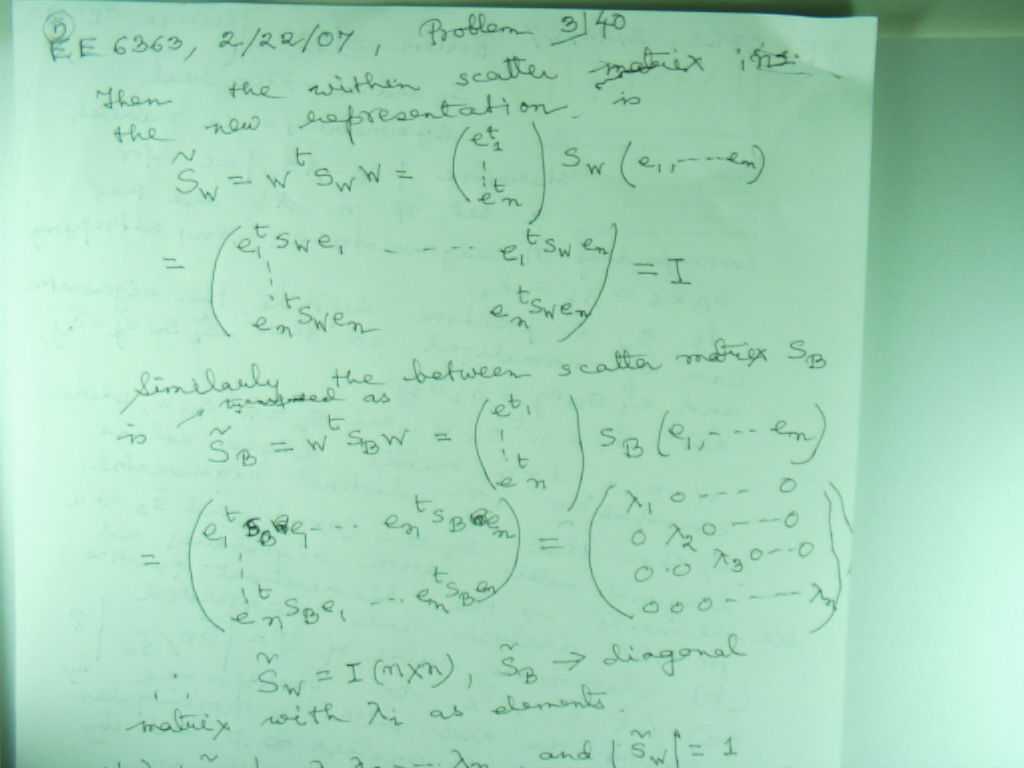 ②
EE 6363, 2/22/07, Problem 3/40
Then the within scatter matrix in
the new representation is
S̃_W = W^t S_W W = (e_1^t ⋮ e_n^t) S_W (e_1, ---- e_n)
= (e_1^t S_W e_1 ---- e_1^t S_W e_n ⋮ e_n^t S_W e_n e_n^t S_W e_n) = I
Similarly the between scatter matrix S_B
is transformed as
S̃_B = W^t S_B W = (e^t_1 ⋮ e^t_n) S_B (e_1, --- e_n)
= (e_1^t S_B e_1 ---- e_n^t S_B e_n ⋮ e_n^t S_B e_1 --- e_n^t S_B e_n) = (λ_1 0 --- 0 0 λ_2 0 --- 0 0 0 λ_3 0 -- 0 0 0 0 ----- λ_n)
S̃_W = I (n×n), S̃_B → diagonal
matrix with λ_i as elements.
and |S̃_W| = 1